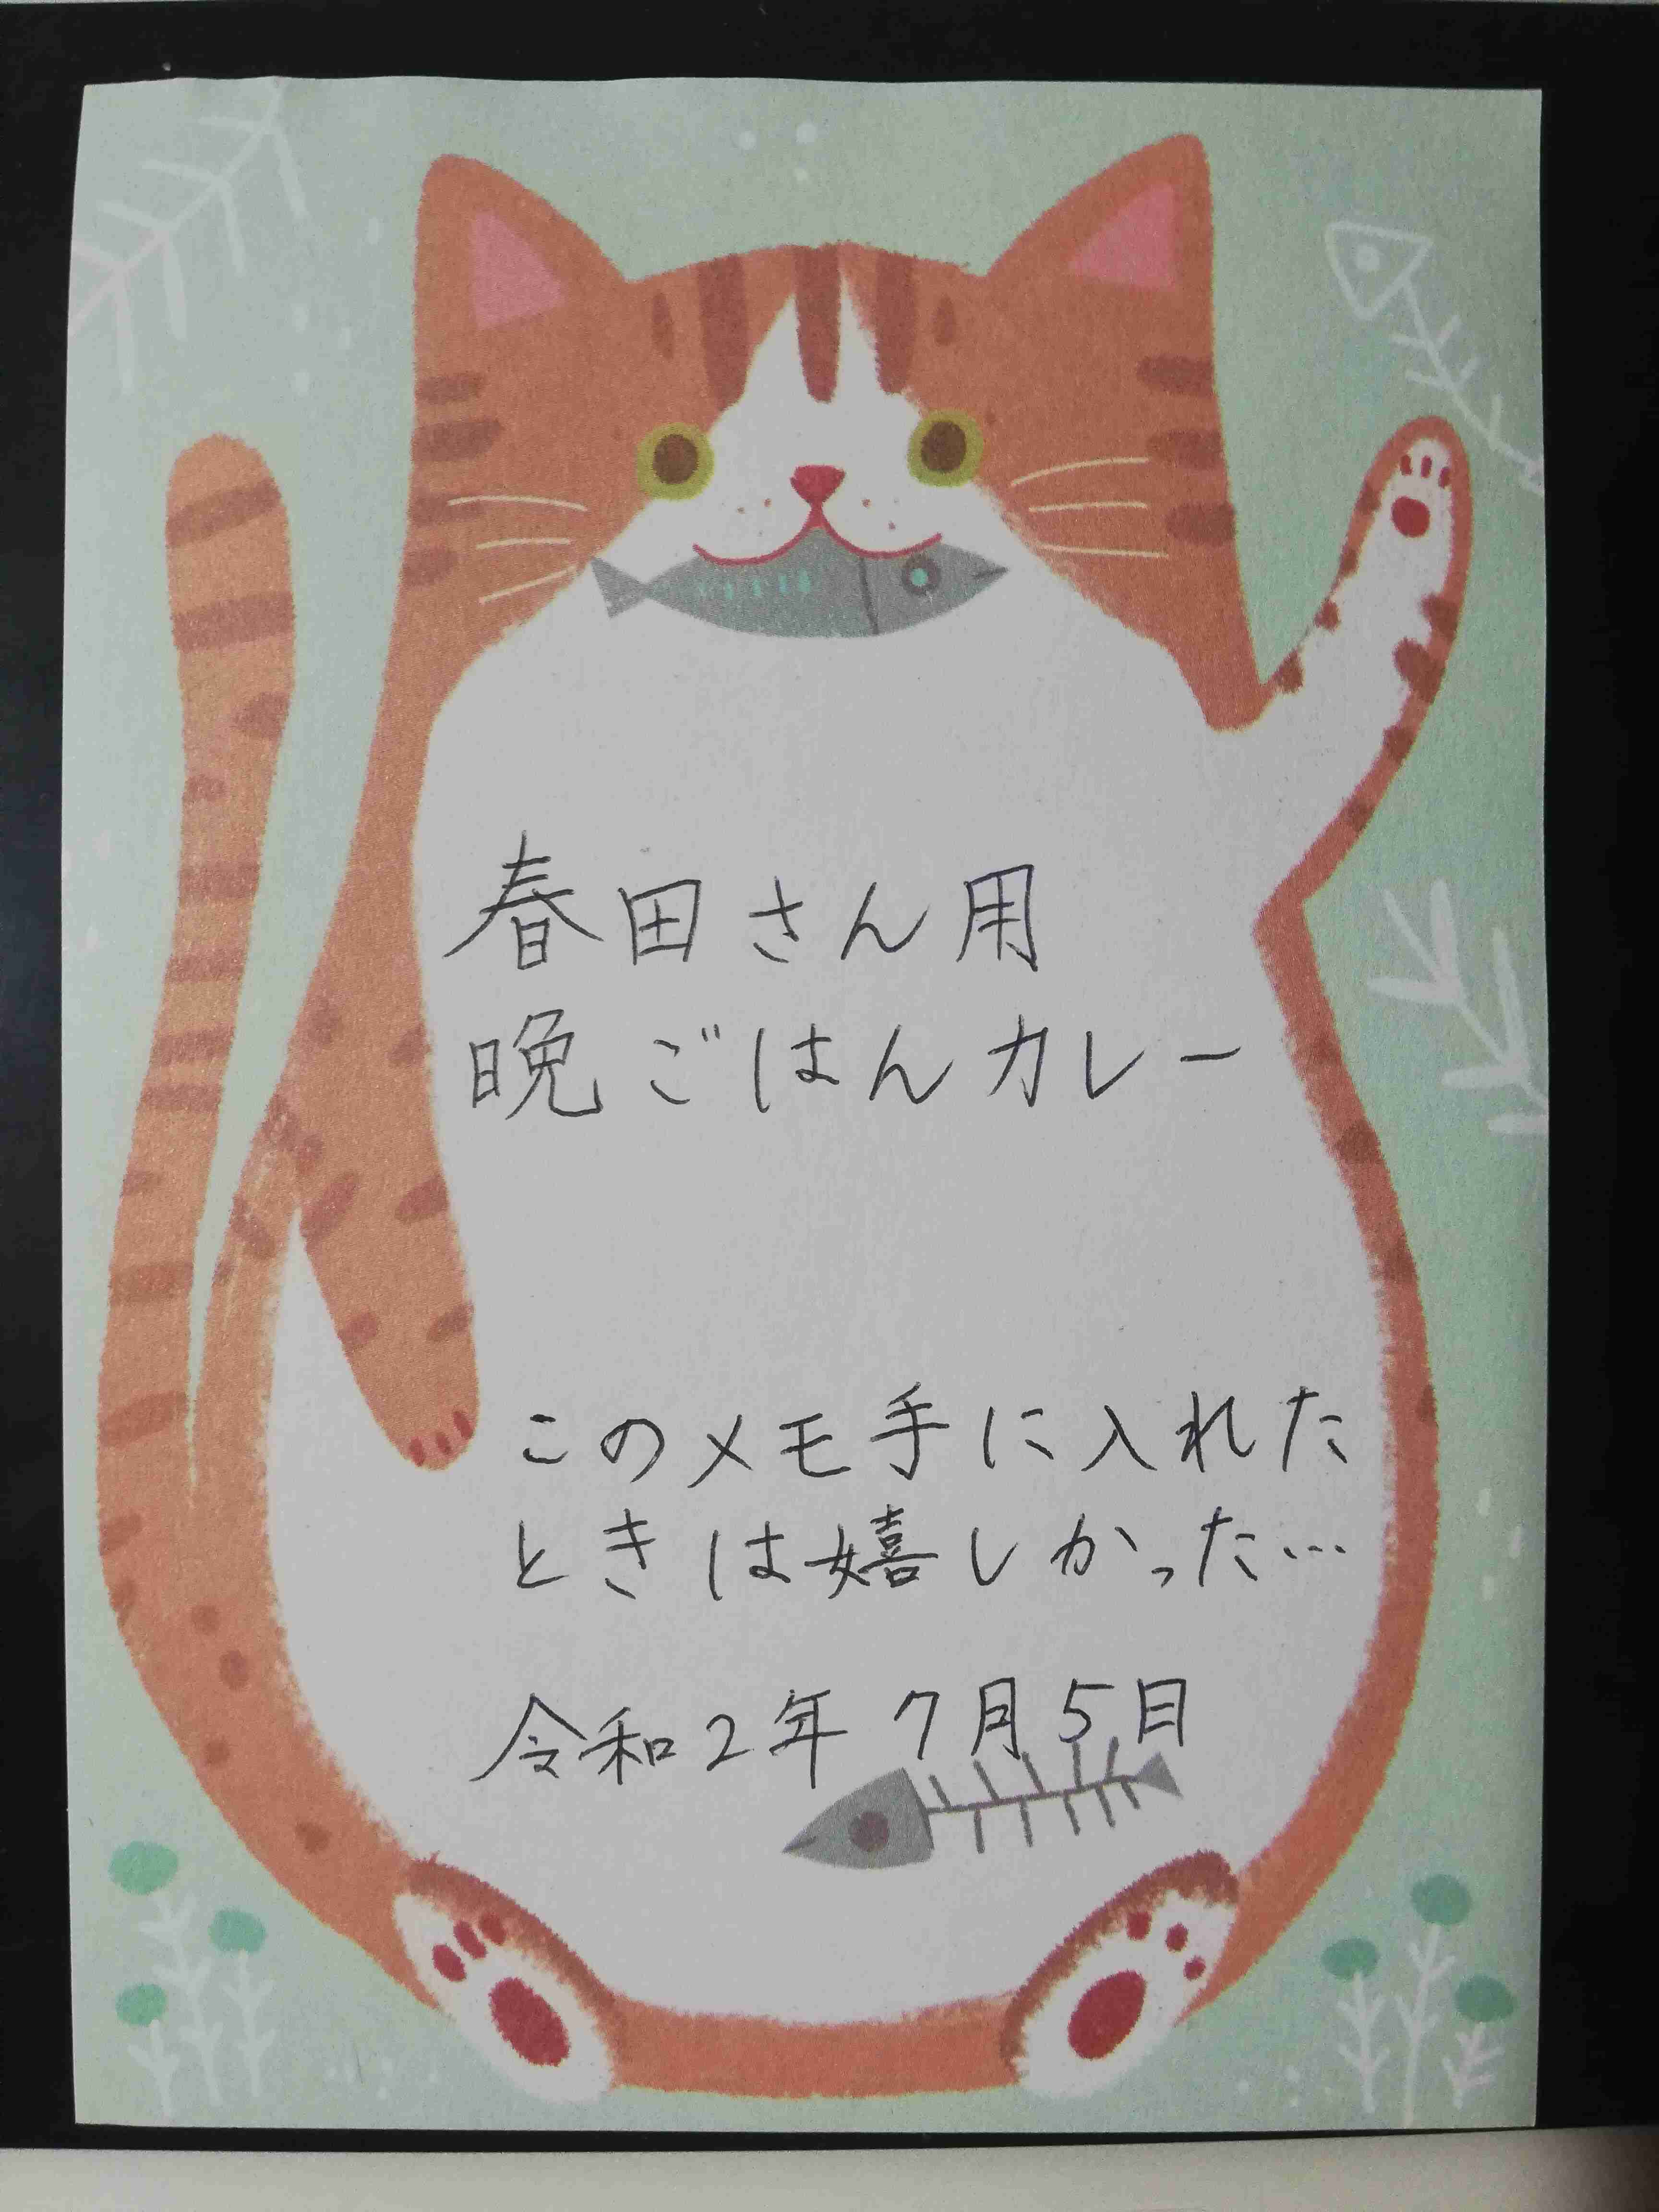 春田さん用
晩ごはんカレー
このメモ手に入れた
ときは嬉しかった…
令和2年 7月5日